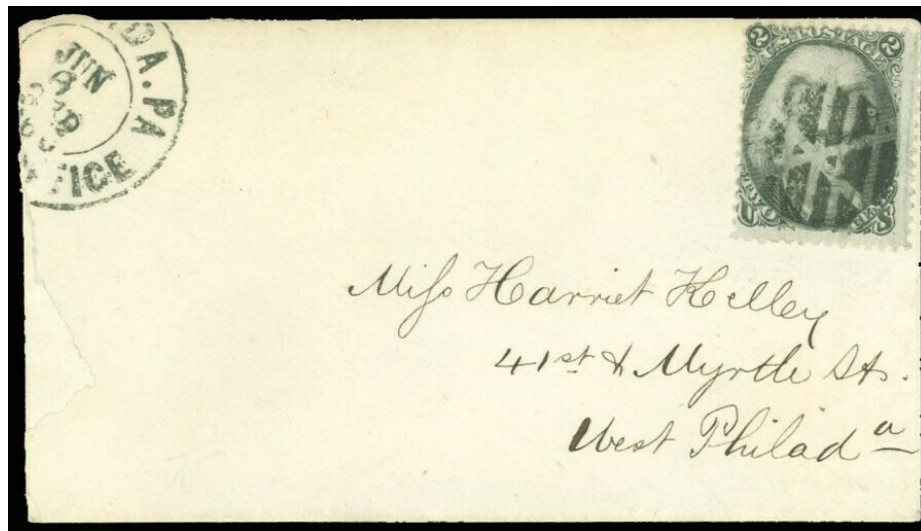 DA. PA
JUN
FICE
2 U.S. POSTAGE 2
U S
Miſs Harriet Kelley
41st & Myrtle Sts.
West Philada